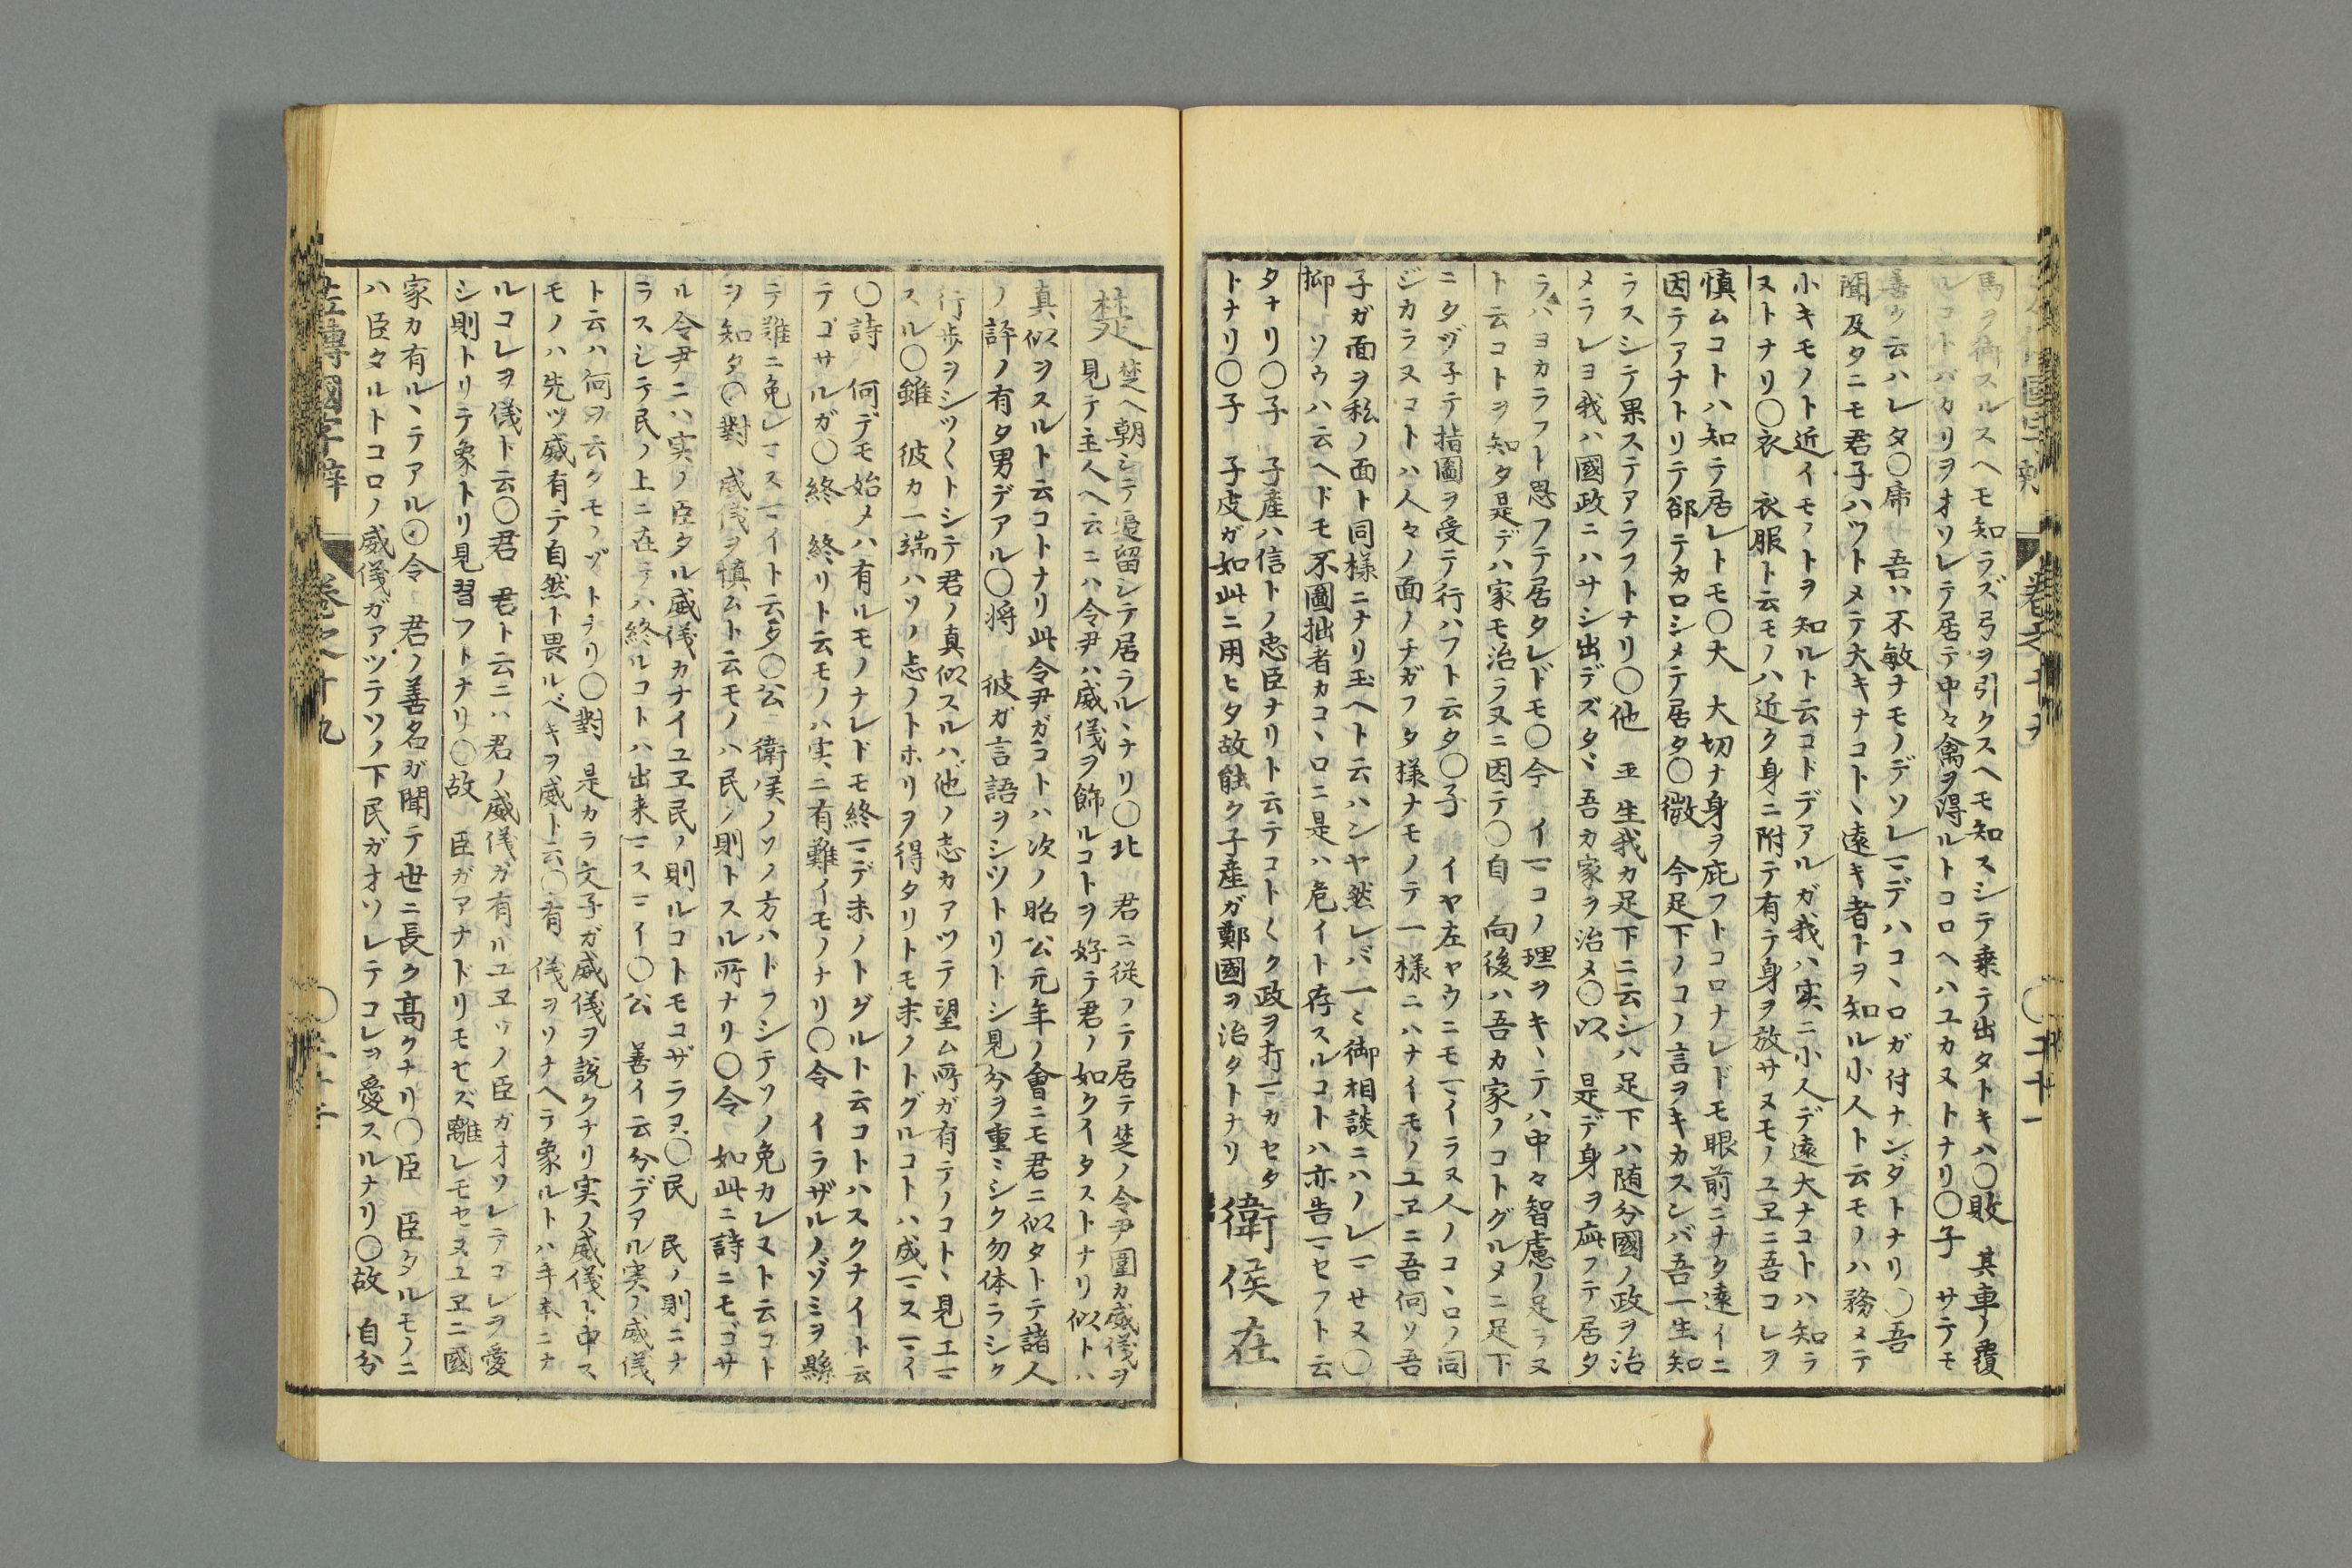 馬ヲ御スルスヘモ知ラズ弓ヲ引クスヘモ知スシテ乗テ出タトキハ〇敗 其車ノ覆
ルコトバカリヲオソレテ居テ中々禽ヲ得ルトコロヘハユカヌトナリ〇子 サテモ
善ウ云ハレタ〇席 吾ハ不敏ナモノデソレマデハコヽロガ付ナンダトナリ〇吾
聞及タニモ君子ハツトメテ大キナコトヽ遠キ者トヲ知ル小人ト云モノハ務メテ
小キモノト近イモノトヲ知ルト云コトデアルガ我ハ実ニ小人デ遠大ナコトハ知ラ
ヌトナリ〇衣 衣服ト云モノハ近ク身ニ附テ有テ身ヲ放サヌモノユヱニ吾コレヲ
慎ムコトハ知テ居レトモ〇大 大切ナ身ヲ庇フトコロナレドモ眼前ニナク遠イニ
因テアナトリテ郤テカロシメテ居タ〇微 今足下ノコノ言ヲキカスンバ吾一生知
ラスシテ果ステアラフトナリ〇他 平生我カ足下ニ云シハ足下ハ随分國ノ政ヲ治
メラレヨ我ハ國政ニハサシ出デズタヽ吾カ家ヲ治メ〇以 是デ身ヲ庇フテ居タ
ラハヨカラフト思フテ居タレドモ〇今 イマコノ理ヲキヽテハ中々智慮ノ足ラヌ
ト云コトヲ知タ是デハ家モ治ラヌニ因テ〇自 向後ハ吾カ家ノコトグルメニ足下
ニタヅ子テ指圖ヲ受テ行ハフト云タ〇子 イヤ左ヤウニモマイラヌ人ノコヽロノ同
ジカラヌコトハ人々ノ面ノチガフタ様ナモノテ一様ニハナイモノユヱニ吾何ソ吾
子ガ面ヲ私ノ面ト同様ニナリ玉ヘト云ハンヤ然レバ一々御相談ニハノレマセヌ〇
抑 ソウハ云ヘドモ不圖拙者カコヽロニ是ハ危イト存スルコトハ亦告マセフト云
タナリ〇子 子産ハ信トノ忠臣ナリト云テコト〱ク政ヲ打マカセタ
トナリ〇子 子皮ガ如此ニ用ヒタ故能ク子産ガ鄭國ヲ治タトナリ 衛侯在
楚 楚ヘ朝シテ逗留シテ居ラルヽナリ〇北 君ニ従フテ居テ楚ノ令尹圍カ威儀ヲ
見テ主人ヘ云ニハ令尹ハ威儀ヲ飾ルコトヲ好テ君ノ如クイタストナリ似トハ
真似ヲスルト云コトナリ此令尹ガコトハ次ノ昭公元年ノ會ニモ君ニ似タトテ諸人
ノ評ノ有タ男デアル〇将 彼ガ言語ヲシツトリトシ見分ヲ重々シク勿体ラシク
行歩ヲシツ〱トシテ君ノ真似スルハ他ノ志カアツテ望ム所ガ有テノコトヽ見エマ
スル〇雖 彼カ一端ハソノ志ノトホリヲ得タリトモ末ノトグルコトハ成マスマイ
〇詩 何デモ始メハ有ルモノナレドモ終マデ末ノトグルト云コトハスクナイト云
テゴサルガ〇終 終リト云モノハ実ニ有難イモノナリ〇令 イラザルノゾミヲ縣
テ難ニ免レマスマイト云タ〇公 衛侯ノソノ方ハドフシテソノ免カレヌト云コト
ヲ知タ〇對 威儀ヲ慎ムト云モノハ民ノ則トスル所ナリ〇令 如此ニ詩ニモゴサ
ル令尹ニハ実ノ臣タル威儀カナイユヱ民ノ則ルコトモコザラヌ〇民 民ノ則ニナ
ラスシテ民ノ上ニ在テハ終ルコトハ出来マスマイ〇公 善イ云分デアル実ノ威儀
ト云ハ何ヲ云タモノゾトナリ〇對 是カラ文子ガ威儀ヲ説クナリ実ノ威儀ト申ス
モノハ先ツ威有テ自然ト畏ルベキヲ威ト云〇有 儀ヲソナヘテ象ルトハ手本ニナ
ルコレヲ儀ト云〇君 君ト云ニハ君ノ威儀ガ有ルユヱソノ臣ガオソレテコレヲ愛
シ則トリテ象トリ見習フトナリ〇故 臣ガアナドリモセズ離レモセヌユヱニ國
家カ有ルヽテアル〇令 君ノ善名ガ聞テ世ニ長ク高クナリ〇臣 臣タルモノニ
ハ臣タルトコロノ威儀ガアツテソノ下民ガオソレテコレヲ愛スルナリ〇故 自分
左傳國字辯 巻之十九